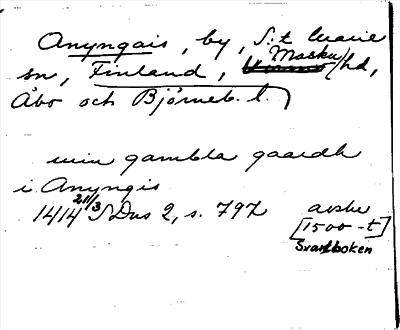 Anyngais, by, S:t Marie
sn, Finland, Masku/hd,
Åbo och Björneb. l.
min gambla gaardh
i Anyngis
1414 21/3 SDns 2, s. 797 avskr
[1500-t]
Svartboken